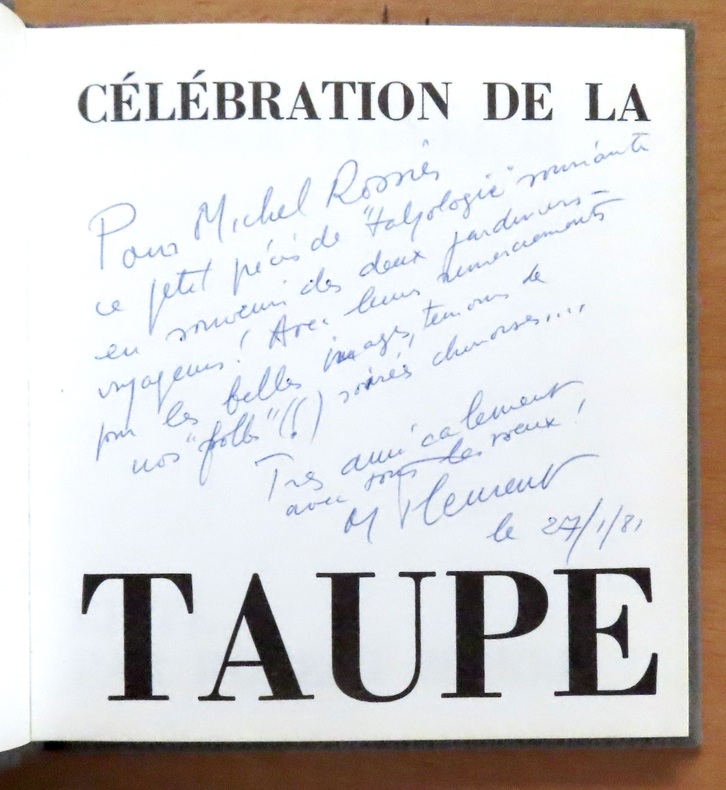 CÉLÉBRATION DE LA
Pour Michel Rossiés
ce petit précis de "talpologie" souriante
en souvenir des deux jardiniers-
voyageurs! Avec leurs remerciements
pour les belles images, témoins de
nos "folles" (!) soirées chinoises....
Très amicalement
avec tous les vœux!
M
le 27/1/81
TAUPE